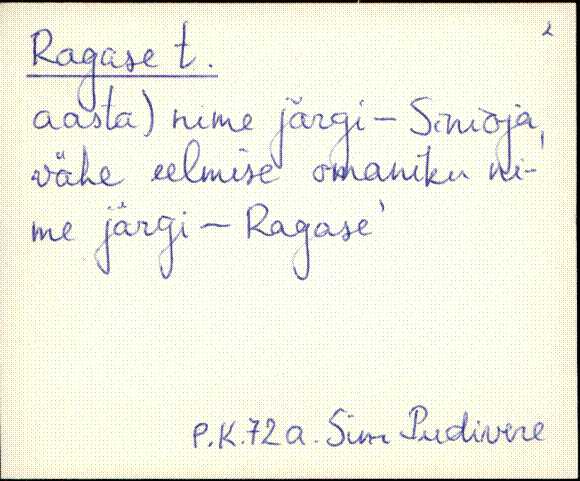 2
Ragase t.
aasta) nime järgi – Sinioja,
vähe eelmise omaniku ni-
me järgi – Ragase'
P.K. 72a. Sim Pudivere